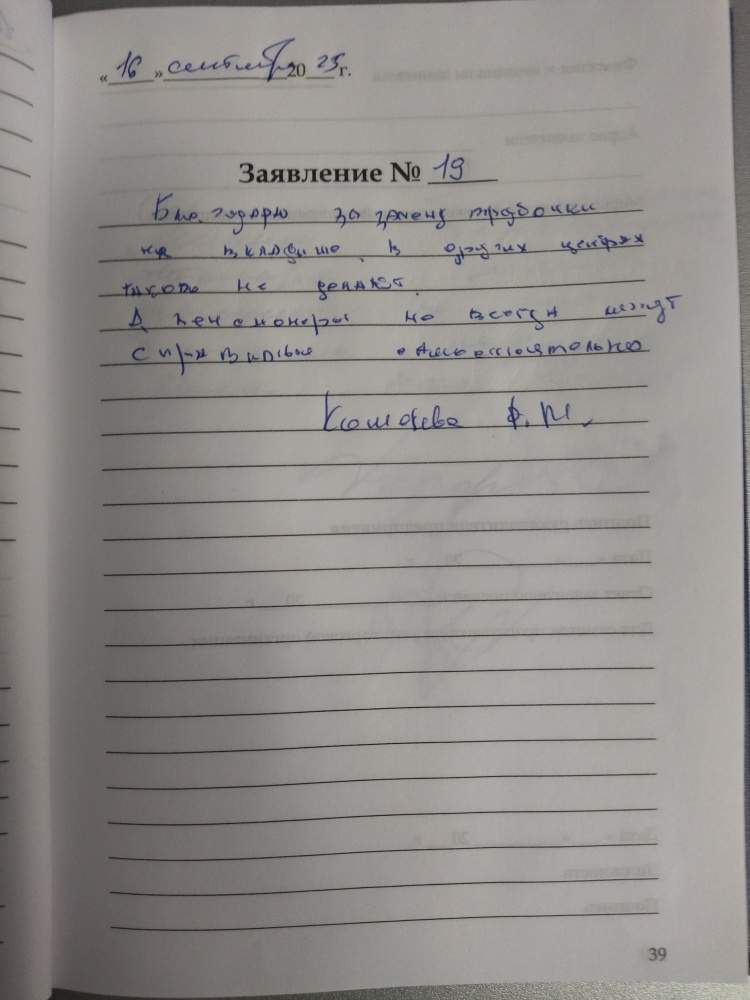 « 16 » сентября 20 25 г.
Заявление № 19
Благодарю за замену трубочки
на вкладыше. В других центрах
такого не делают.
А пенсионеры не всегда могут
справиться самостоятельно
Ф. М.
39